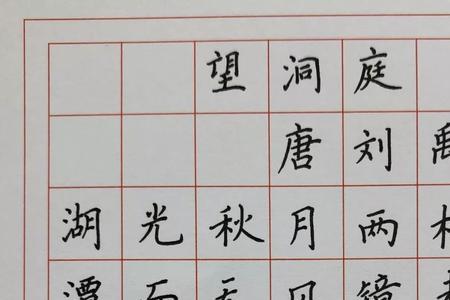 望洞庭
唐刘禹
湖光秋月两相
潭面无风镜